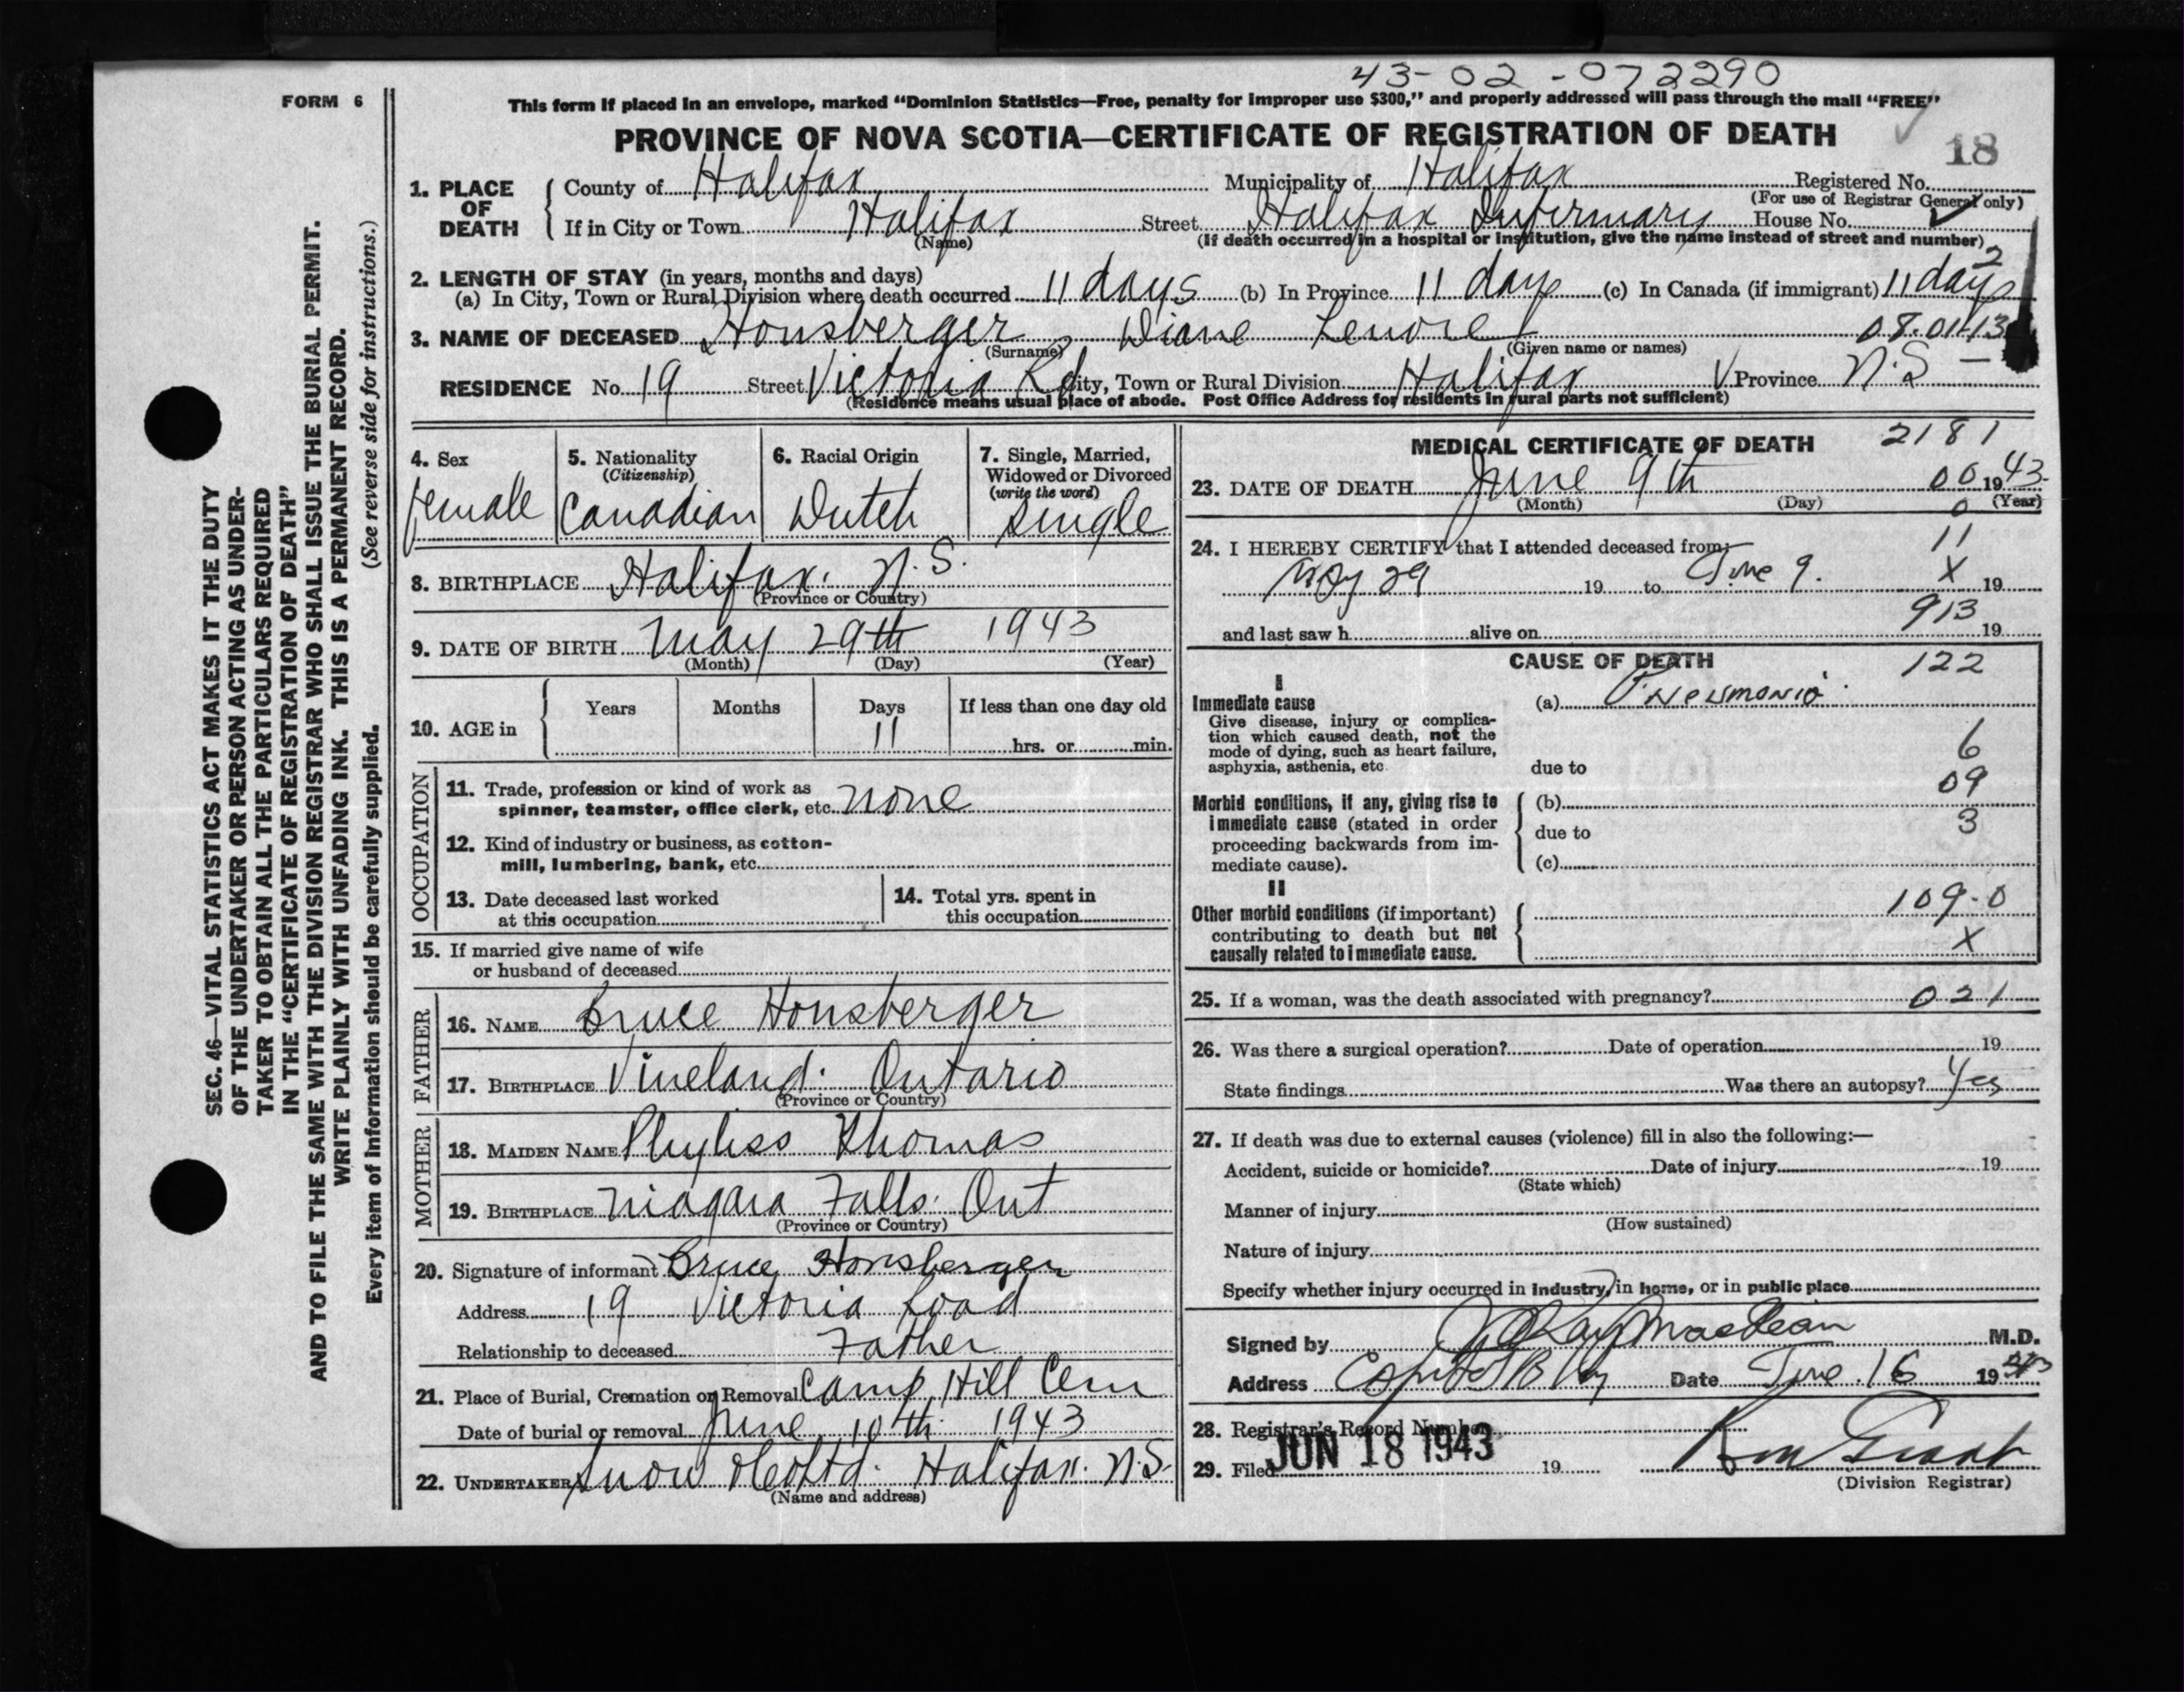 43-02-072290
FORM 6
This form if placed in an envelope, marked "Dominion Statistics—Free, penalty for improper use $300," and properly addressed will pass through the mail "FREE"
PROVINCE OF NOVA SCOTIA—CERTIFICATE OF REGISTRATION OF DEATH
18
SEC. 46—VITAL STATISTICS ACT MAKES IT THE DUTY
OF THE UNDERTAKER OR PERSON ACTING AS UNDER-
TAKER TO OBTAIN ALL THE PARTICULARS REQUIRED
IN THE "CERTIFICATE OF REGISTRATION OF DEATH"
AND TO FILE THE SAME WITH THE DIVISION REGISTRAR WHO SHALL ISSUE THE BURIAL PERMIT.
WRITE PLAINLY WITH UNFADING INK. THIS IS A PERMANENT RECORD.
Every item of information should be carefully supplied. (See reverse side for instructions.)
1. PLACE OF DEATH
County of Halifax Municipality of Halifax Registered No.
(For use of Registrar General only)
If in City or Town Halifax Street Halifax Infirmary House No.
(Name) (If death occurred in a hospital or institution, give the name instead of street and number)
2. LENGTH OF STAY (in years, months and days) 2
(a) In City, Town or Rural Division where death occurred 11 days (b) In Province 11 days (c) In Canada (if immigrant) 11 days
3. NAME OF DECEASED Honsberger, Diane Lenore 08.01.13
(Surname) (Given name or names)
RESIDENCE No. 19 Street Victoria Rd City, Town or Rural Division Halifax Province N.S
(Residence means usual place of abode. Post Office Address for residents in rural parts not sufficient)
4. Sex
female
5. Nationality
(Citizenship)
Canadian
6. Racial Origin
Dutch
7. Single, Married,
Widowed or Divorced
(write the word)
single
8. BIRTHPLACE Halifax. N.S.
(Province or Country)
9. DATE OF BIRTH May 29th 1943
(Month) (Day) (Year)
10. AGE in
Years Months Days If less than one day old
11 hrs. or min.
OCCUPATION
11. Trade, profession or kind of work as
spinner, teamster, office clerk, etc. none
12. Kind of industry or business, as cotton-
mill, lumbering, bank, etc.
13. Date deceased last worked
at this occupation
14. Total yrs. spent in
this occupation
15. If married give name of wife
or husband of deceased
FATHER
16. NAME Bruce Honsberger
17. BIRTHPLACE Vineland. Ontario
(Province or Country)
MOTHER
18. MAIDEN NAME Phyliss Thomas
19. BIRTHPLACE Niagara Falls. Ont
(Province or Country)
20. Signature of informant Bruce Honsberger
Address 19 Victoria Road
Relationship to deceased Father
21. Place of Burial, Cremation or Removal Camp Hill Cem
Date of burial or removal June 10th 1943
22. UNDERTAKER Snow & Co Ltd. Halifax. N.S.
(Name and address)
MEDICAL CERTIFICATE OF DEATH 2181
23. DATE OF DEATH June 9th 00 1943
(Month) (Day) 0 (Year)
24. I HEREBY CERTIFY that I attended deceased from: 11
May 29 19 to June 9. X 19
913
and last saw h alive on 19
CAUSE OF DEATH 122
I
Immediate cause
Give disease, injury or complica-
tion which caused death, not the
mode of dying, such as heart failure,
asphyxia, asthenia, etc
(a) Pneumonia
6
due to
09
Morbid conditions, if any, giving rise to
immediate cause (stated in order
proceeding backwards from im-
mediate cause).
(b)
due to 3
(c)
II
Other morbid conditions (if important)
contributing to death but not
causally related to immediate cause.
109.0
X
25. If a woman, was the death associated with pregnancy? 021
26. Was there a surgical operation? Date of operation 19
State findings Was there an autopsy? Yes
27. If death was due to external causes (violence) fill in also the following:—
Accident, suicide or homicide? Date of injury 19
(State which)
Manner of injury
(How sustained)
Nature of injury
Specify whether injury occurred in industry, in home, or in public place
Signed by Kay MacLean M.D.
Address Date June 16 1943
28. Registrar's Record Number
29. Filed JUN 18 1943 19
(Division Registrar)